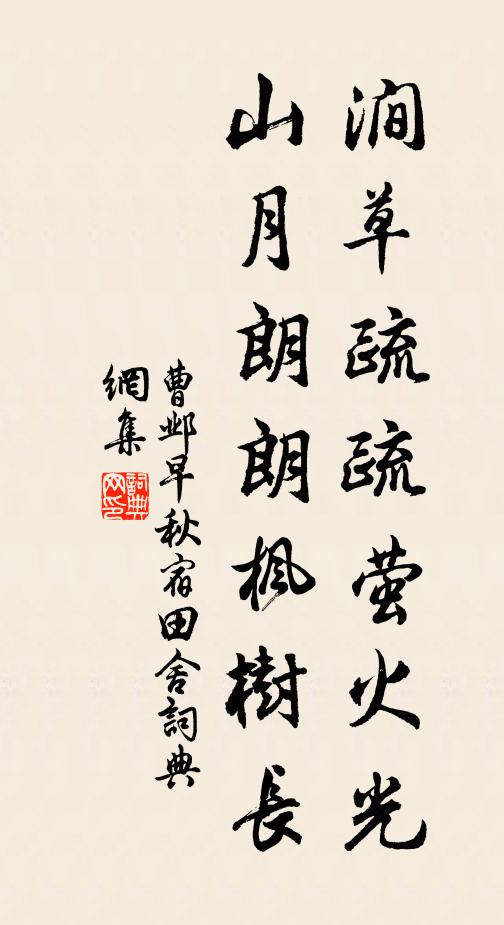 澗草疏疏螢火光
山月朗朗楓樹長
曹邺早秋宿田舍詞典
網集
詞典
网印